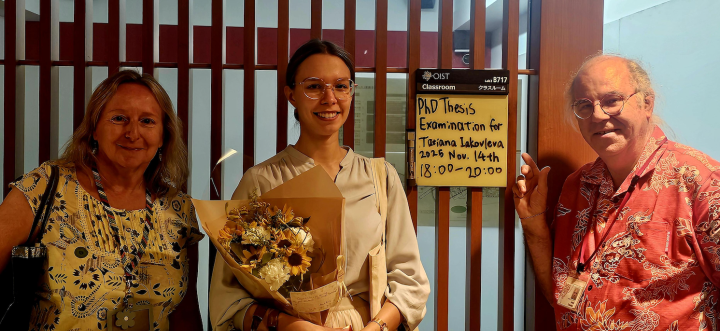 OIST
Lab4 B717
Classroom クラスルーム
PhD Thesis
Examination for
Tatiana Iakovleva
2025 Nov. 14th
18:00-20:00